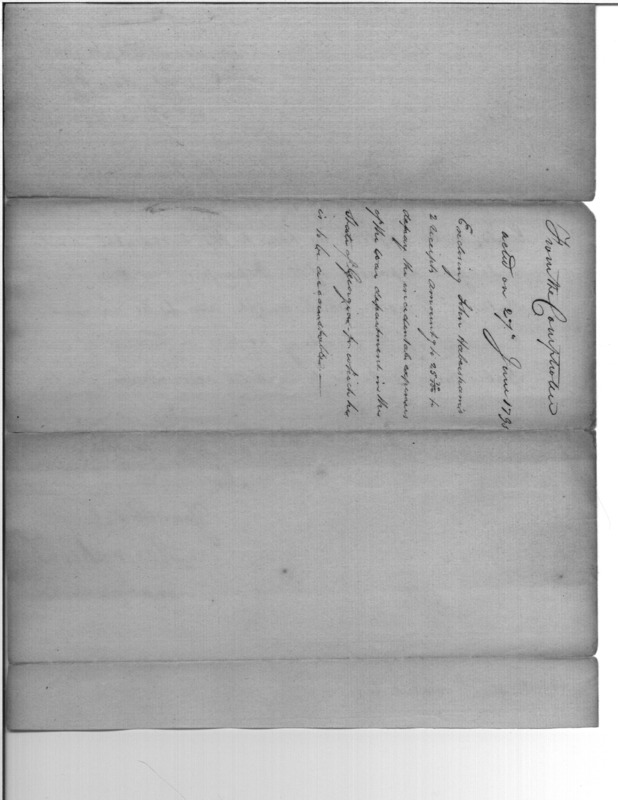 From the Comptroller
acted on 27th June 1795
Enclosing John Habersham's
2 receipts amountg to 25 to
defray the incidental expenses
of the War department in the
State of Georgia for which he
is to be accountable.—